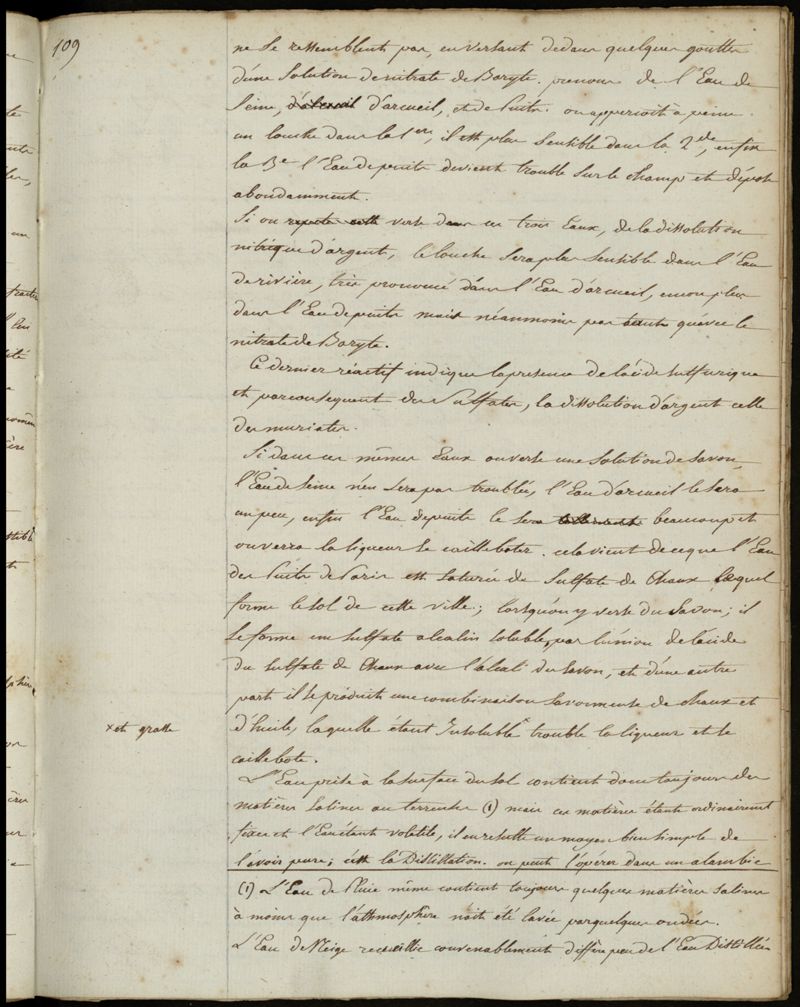 109
ne se ressemblent pas, en versant dedans quelques gouttes
d'une solution de nitrate de Baryte. prenons de l'Eau de
Seine, d'arcueil, et de Puits. on apperçoit à peine
un louche dans la 1ere, il est plus sensible dans la 2de, enfin
la 3e l'Eau de puits devient trouble sur le champ et dépose
abondamment.
Si on verse dans ces trois Eaux, de la dissolution
nitrique d'argent, le louche sera plus sensible dans l'Eau
de rivière, très prononcé dans l'Eau d'arcueil, encore plus
dans l'Eau de puits mais néanmoins pas autant qu'avec le
nitrate de Baryte.
Ce dernier réactif indique la presence de l'acide sulfurique
et par consequent des Sulfates, la dissolution d'argent celle
des muriates.
Si dans ces mêmes Eaux on verse une solution de savon,
l'Eau de Seine n'en sera pas troublée, l'Eau d'arcueil le sera
un peu, enfin l'Eau de puits le sera beaucoup et
on verra la liqueur se cailleboter. cela vient de ce que l'Eau
des Puits de Paris est saturée de Sulfate de Chaux lequel
forme le sol de cette ville; lorsqu'on y verse du Savon; il
se forme un sulfate alcalin soluble, par l'union de l'acide
du sulfate de Chaux avec l'alcali du savon, et d'une autre
part il se produit une combinaison savonneuse de chaux et
x et grasse
d'huile, laquelle étant Insoluble x trouble la liqueur et se
caillebote.
L'Eau prise à la surface du sol contient donc toujours des
matières salines ou terreuses (1) mais ces matières étant ordinairement
fixes et l'Eau étant volatile, il en resulte un moyen bien simple de
l'avoir pure; c'est la Distillation. on peut l'opérer dans un alambic
(1) L'Eau de Pluie même contient toujours quelques matières salines
à moins que l'athmosphère n'ait été lavée par quelques ondées.
L'Eau de Neige recueillie convenablement diffère peu de l'Eau Distillée